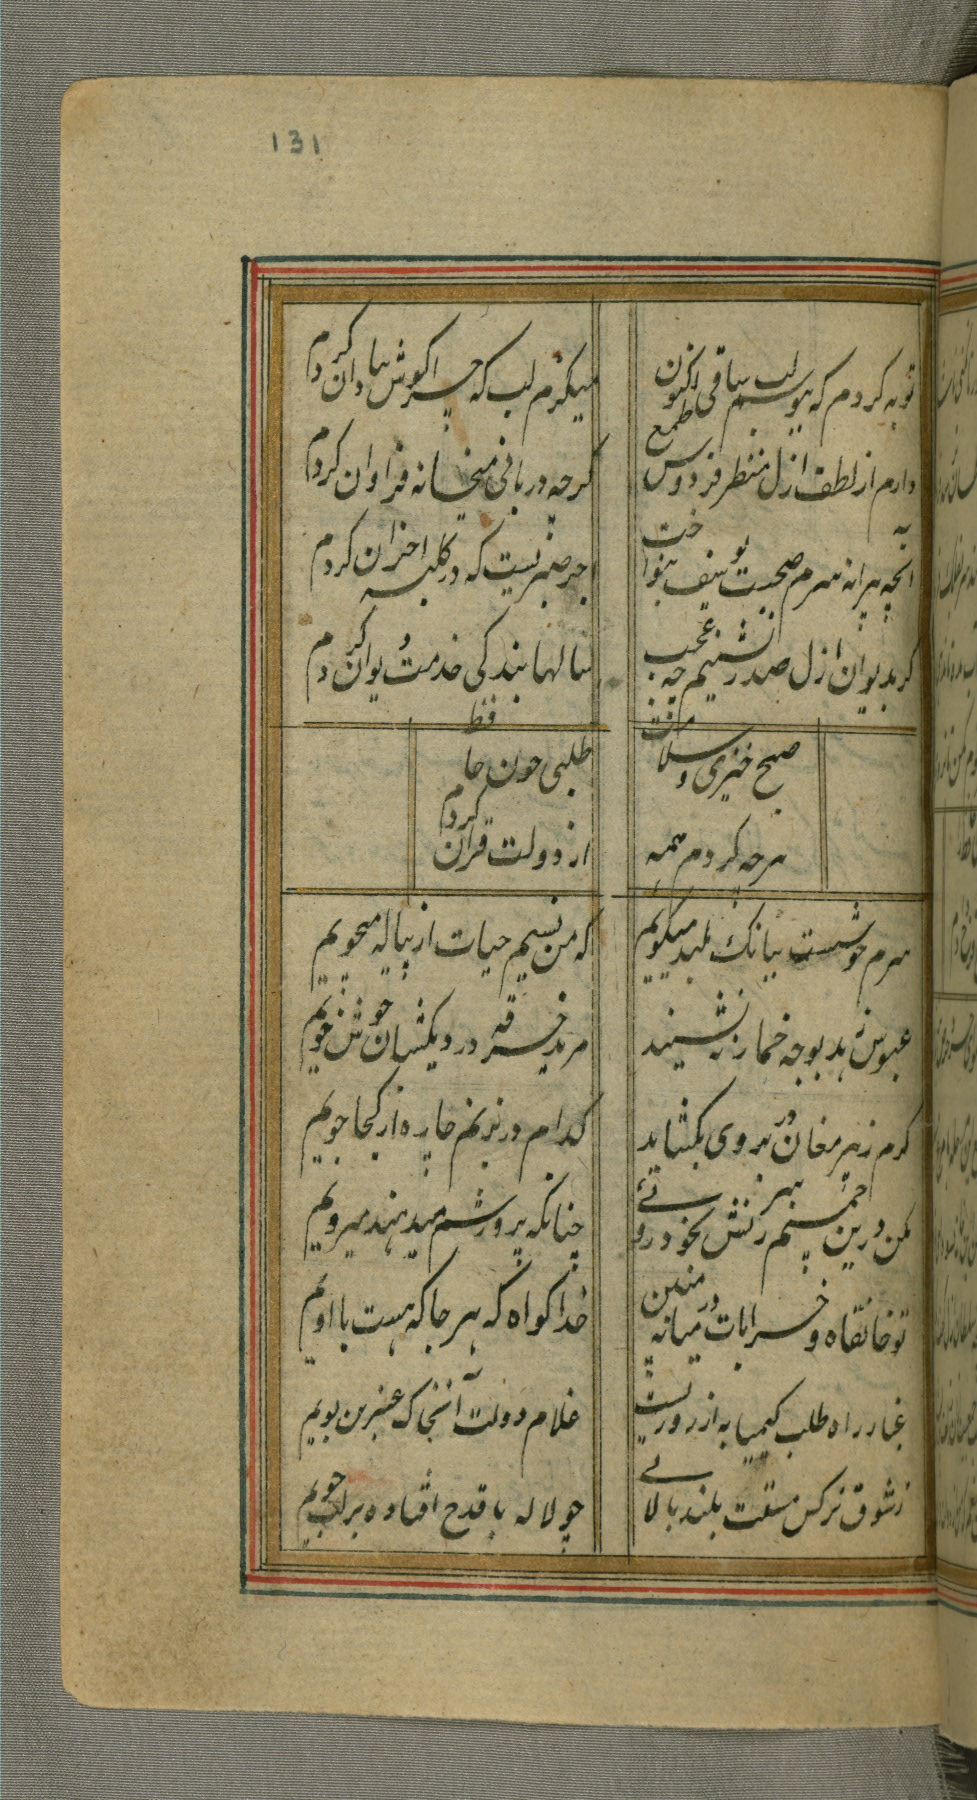 131
توبه کردم که نبوسم لب ساقی و اکنون
میکزم لب که چرا کوش بنادان کردم
دارم از لطف ازل منتظر فردوس طمع
کرچه دربانی میخانه فراوان کردم
آنچه پیرانه سرم صحبت یوسف بنواخت
اجر صبریست که در کلبه احزان کردم
کر بدیوان ازل صدر نشینم چه عجب
سالها بندکی خدمت دیوان کردم
صبح خیزی و سلامت
طلبی چون حافظ
هرچه کردم همه
از دولت قرآن کردم
سرم خوشست ببانک بلند میکویم
که من نسیم حیات از پیاله میجویم
عبوس زهد بوجه خمار ننشیند
مرید خرقه دردیکشان خوش خویم
کرم نه پیر مغان در بروی بکشاید
کدام در بزنم چاره از کجا جویم
مکن درین چمنم سرزنش بخود روئی
چنانکه پرورشم میدهند میرویم
تو خانقاه و خرابات در میانه مبین
خدا کواه که هر جا که هست با اویم
غبار راه طلب کیمیا به از روزیست
غلام دولت آن خاک عنبرین بویم
ز شوق نرکس مست بلند بالائی
چو لاله با قدح افتاده بر لب جویم